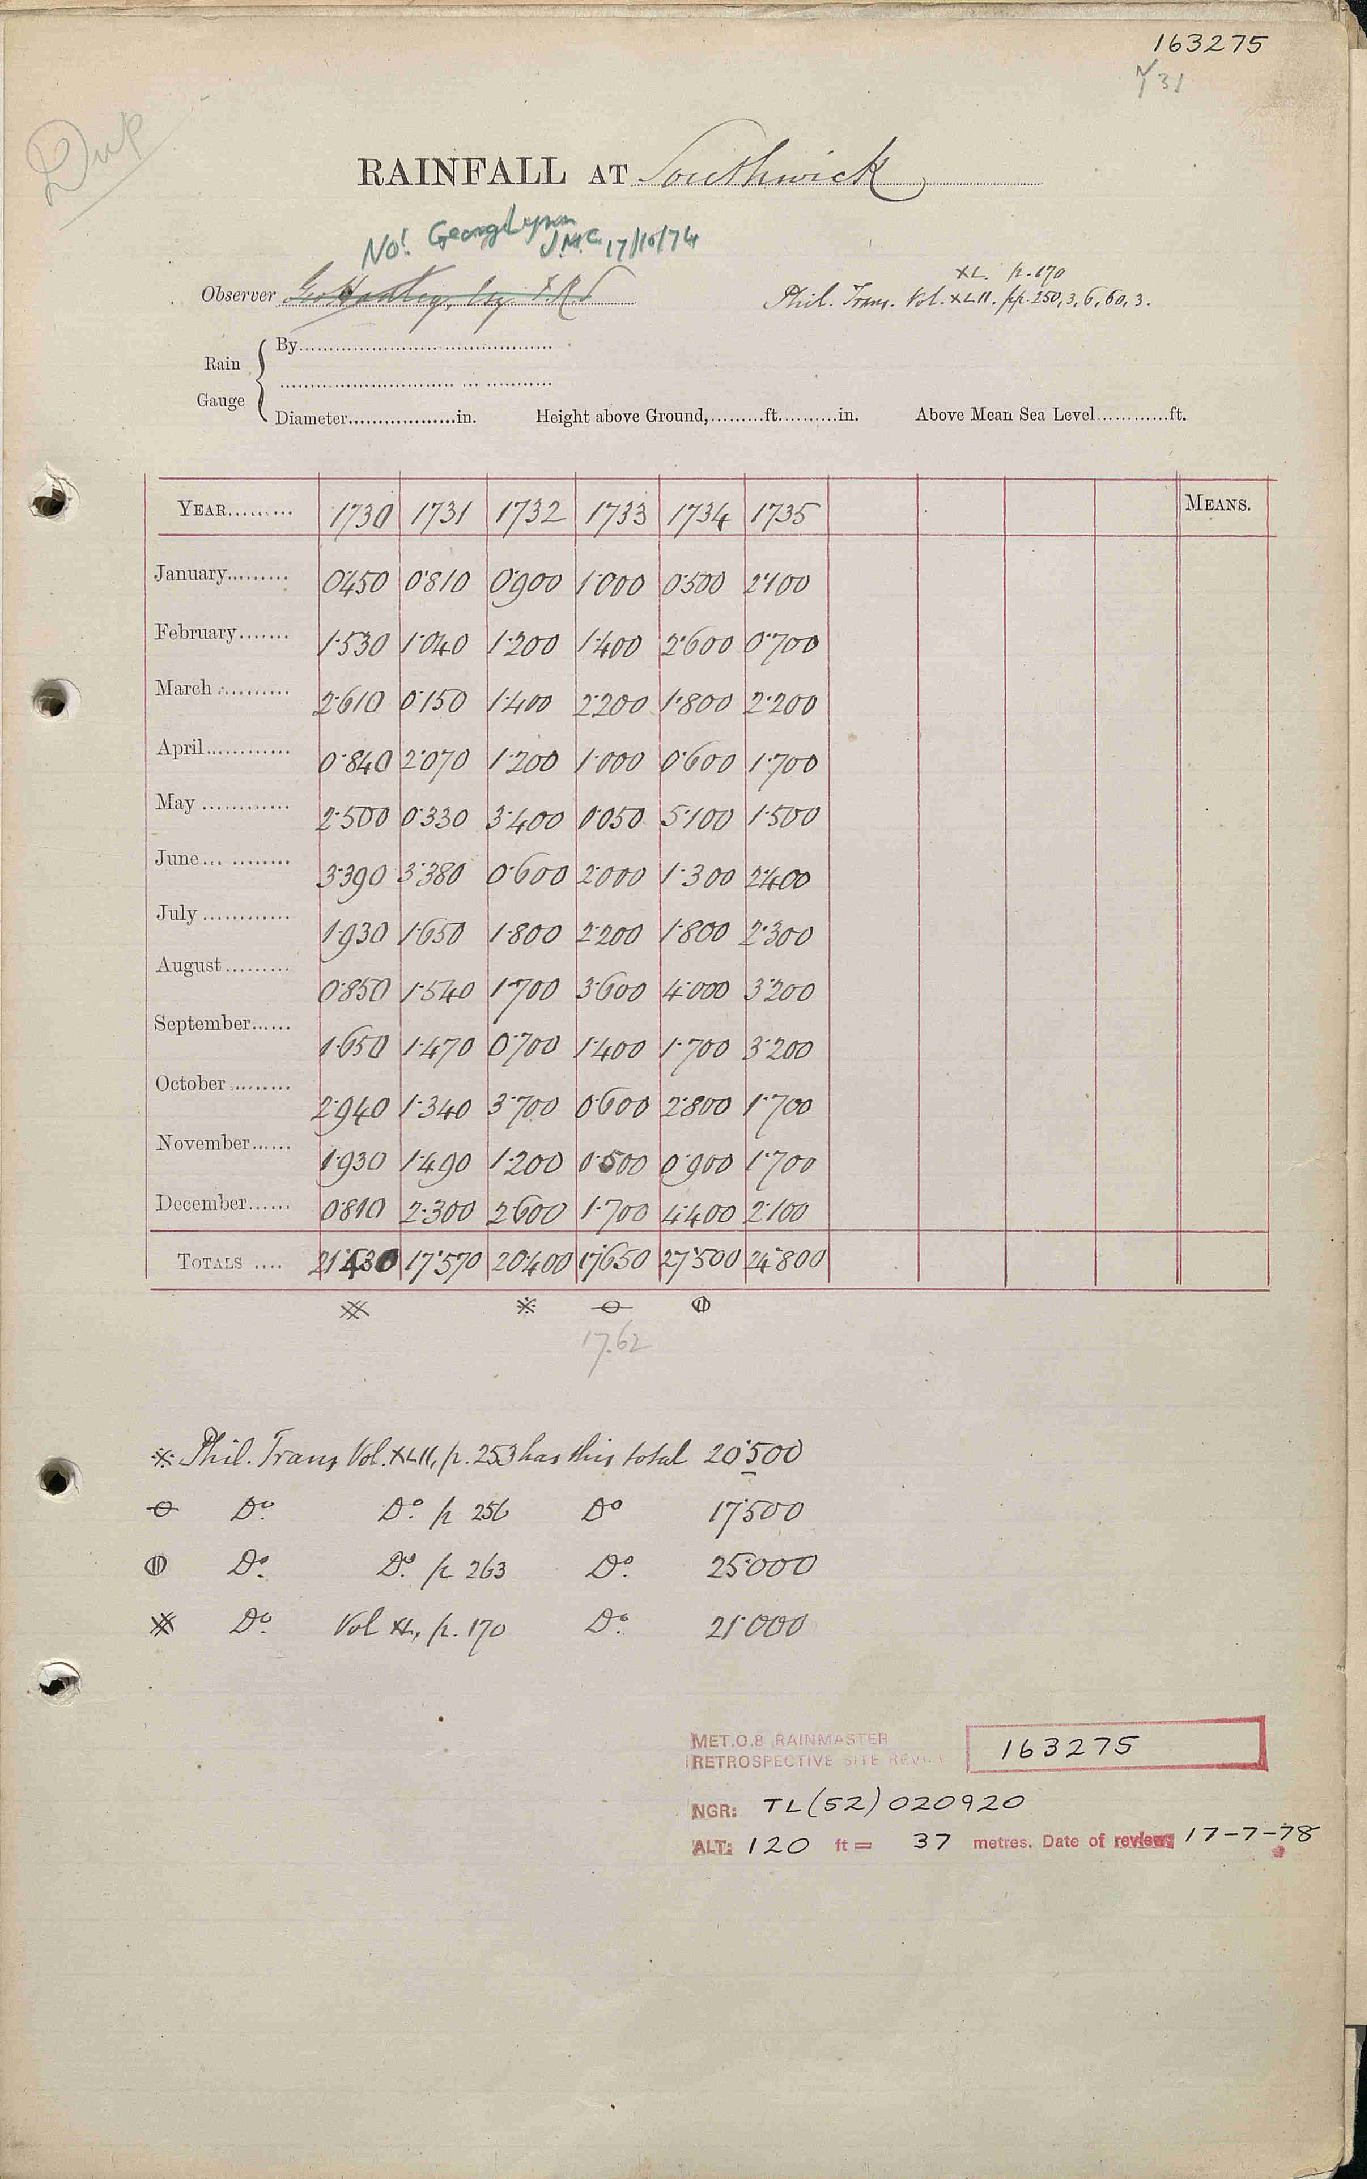 163275
Y31
Dup
RAINFALL AT Southwick
No! George Lynn
J.M.C. 17/10/74
XL. p. 170
Observer Geo Hartley, Esq. F.R.S
Phil. Trans. Vol. XLII. pp. 250, 3, 6, 60, 3.
Rain Gauge By
Diameter in. Height above Ground, ft. in. Above Mean Sea Level ft.
YEAR 1730 1731 1732 1733 1734 1735 MEANS.
January 0·450 0·810 0·900 1·000 0·500 2·100
February 1·530 1·040 1·200 1·400 2·600 0·700
March 2·610 0·150 1·400 2·200 1·800 2·200
April 0·840 2·070 1·200 1·000 0·600 1·700
May 2·500 0·330 3·400 0·050 5·100 1·500
June 3·390 3·380 0·600 2·000 1·300 2·400
July 1·930 1·650 1·800 2·200 1·800 2·300
August 0·850 1·540 1·700 3·600 4·000 3·200
September 1·650 1·470 0·700 1·400 1·700 3·200
October 2·940 1·340 3·700 0·600 2·800 1·700
November 1·930 1·490 1·200 0·500 0·900 1·700
December 0·810 2·300 2·600 1·700 4·400 2·100
TOTALS 21·430 17·570 20·400 17·650 27·500 24·800
17.62
※ Phil. Trans Vol. XLII, p. 253 has this total 20·500
Do. Do. p 256 Do 17·500
Do. Do. p 263 Do. 25·000
Do. Vol XL, p. 170 Do. 21·000
MET.O.8 RAINMASTER
RETROSPECTIVE SITE REVIEW 163275
NGR: TL(52)020920
ALT: 120 ft = 37 metres. Date of review: 17-7-78